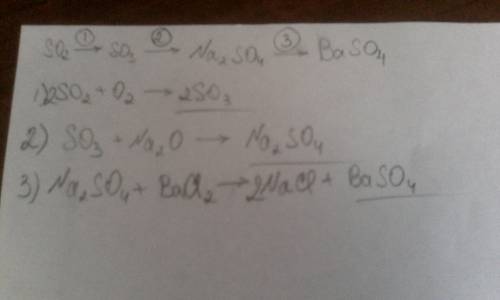 SO₂ —①→ SO₃ —②→ Na₂SO₄ —③→ BaSO₄
1) 2SO₂ + O₂ → 2SO₃
2) SO₃ + Na₂O → Na₂SO₄
3) Na₂SO₄ + BaCl₂ → 2NaCl + BaSO₄